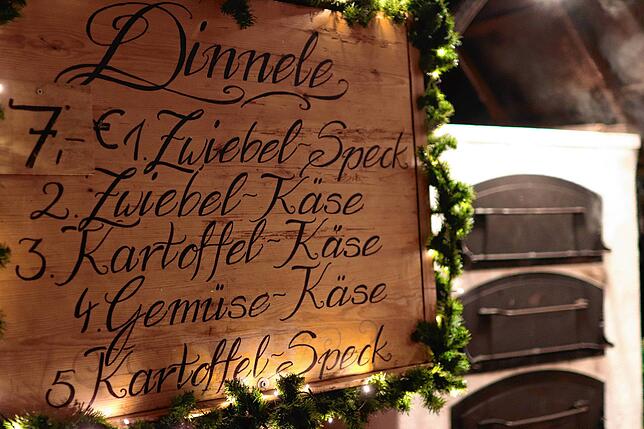 Dinnele
7,- € 1. Zwiebel-Speck
2. Zwiebel-Käse
3. Kartoffel-Käse
4. Gemüse-Käse
5. Kartoffel-Speck